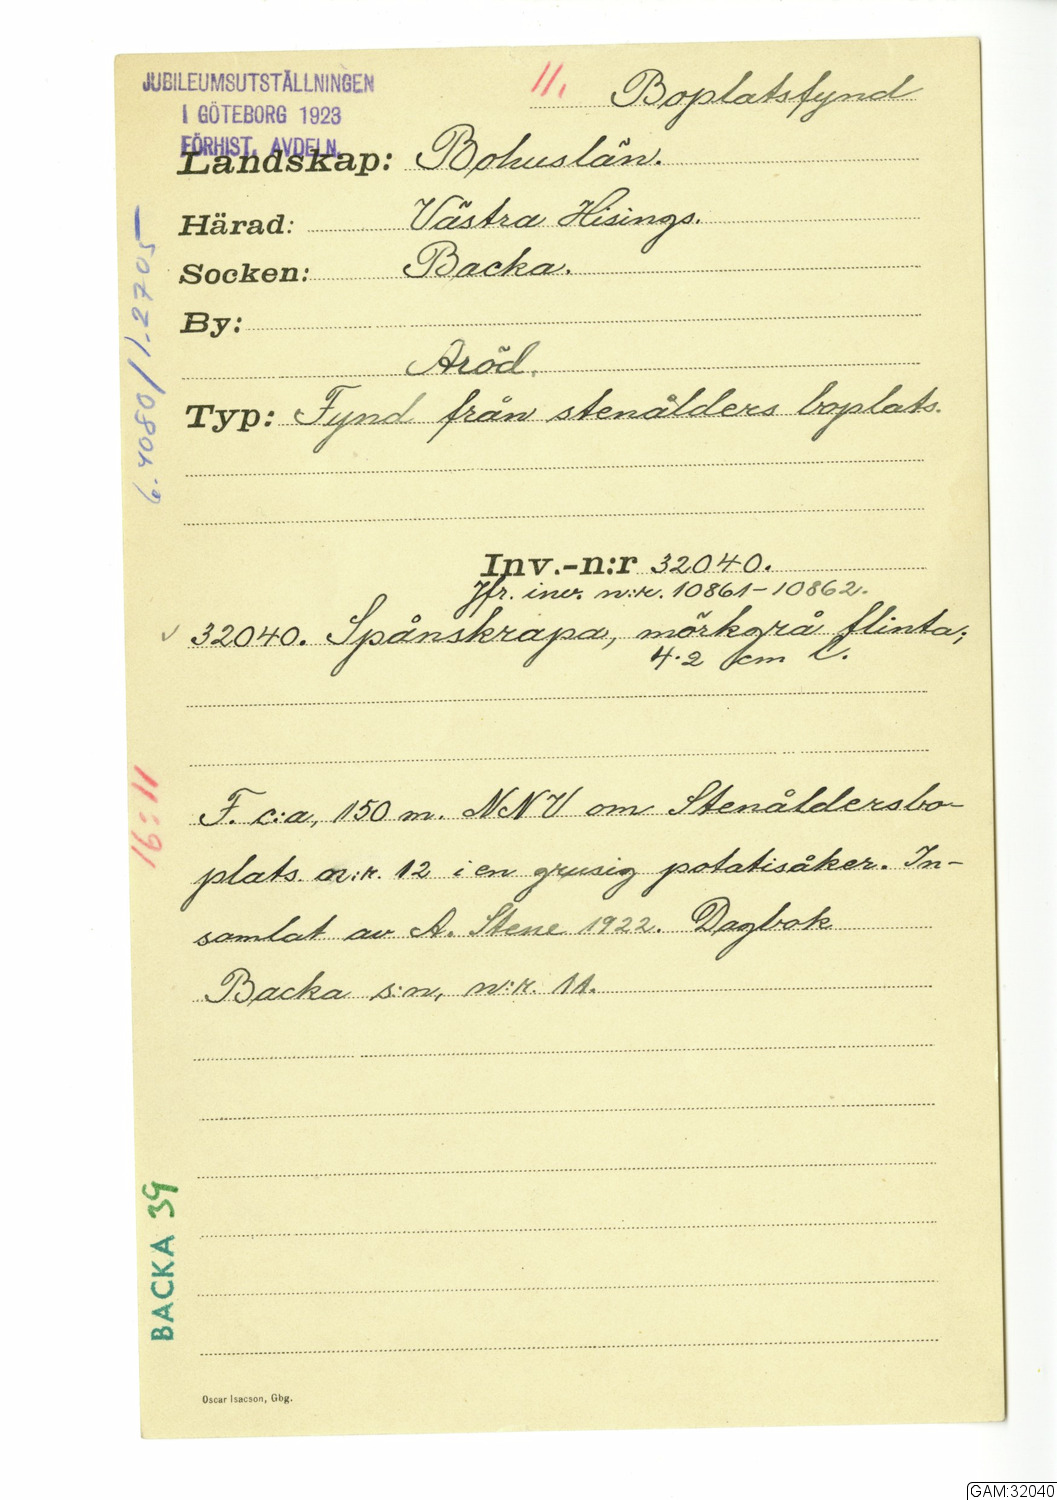 JUBILEUMSUTSTÄLLNINGEN
I GÖTEBORG 1923
FÖRHIST. AVDELN.
11.
Boplatsfynd
Landskap: Bohuslän.
Härad: Västra Hisings.
Socken: Backa.
By:
Aröd.
Typ: Fynd från stenålders boplats.
Inv.-n:r 32040.
Jfr. inv. n:r. 10861-10862.
✓ 32040. Spånskrapa, mörkgrå flinta;
4.2 cm l.
F. c:a, 150 m. NNV om Stenåldersbo-
plats n:r. 12 i en grusig potatisåker. In-
samlat av A. Stene 1922. Dagbok
Backa s:n, n:r. 11.
6.4080/1-2705
16:11
BACKA 39
Oscar Isacson, Gbg.
GAM:32040